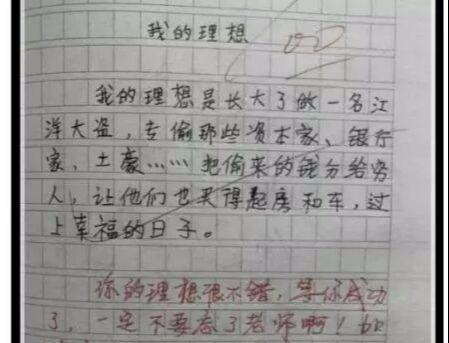 我的理想
我的理想是长大了做一名江
洋大盗，专偷那些资本家、银行
家、土豪……把偷来的钱分给穷
人，让他们也买得起房和车，过
上幸福的日子。
你的理想很不错，等你成功
了，一定不要忘了老师啊！